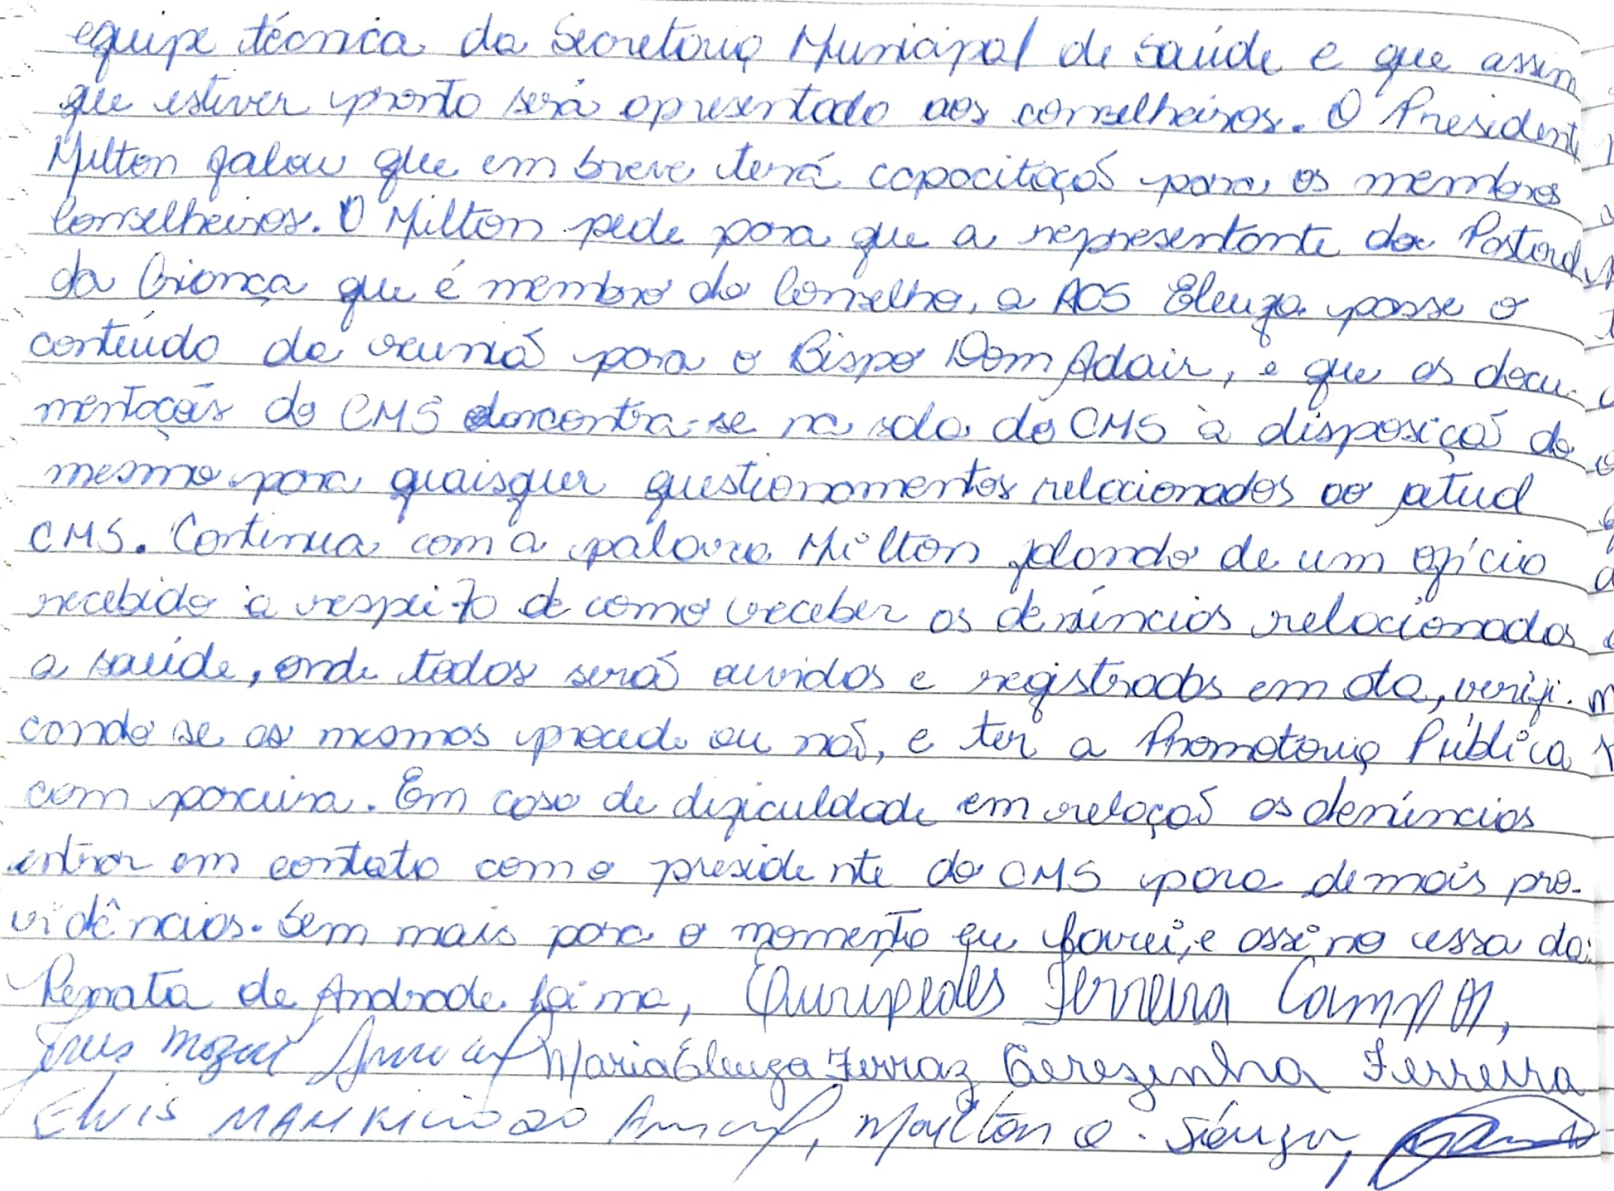 equipe técnica da Secretaria Municipal de saúde e que assim
que estiver pronto será apresentado aos conselheiros. O President
Milton falou que em breve terá capacitação para os membros
Conselheiros. O Milton pede para que a representante da Pastoral
da Criança que é membro do Conselho, a ACS Eleuza passe o
conteúdo da reunião para o Bispo Dom Adair, e que as docu-
mentações do CMS encontra-se na sala do CMS à disposição do
mesmo para quaisquer questionamentos relacionados ao atual
CMS. Continua com a palavra Milton falando de um ofício
recebido a respeito de como receber as denúncias relacionadas
a saúde, onde todos serão ouvidos e registrados em ata, verifi-
cando se as mesmas procede ou não, e ter a Promotoria Pública
com parceira. Em caso de dificuldade em relação as denúncias
entrar em contato com o presidente do CMS para demais pro-
vidências. Sem mais para o momento eu lavrei, e assino essa ata:
Renata de Andrade Lima, Eurípedes Ferreira Campos,
Maria Eleuza Ferraz Terezinha Ferreira
Elvis MAURICIO DO Amaral, Mailton O. Souza,